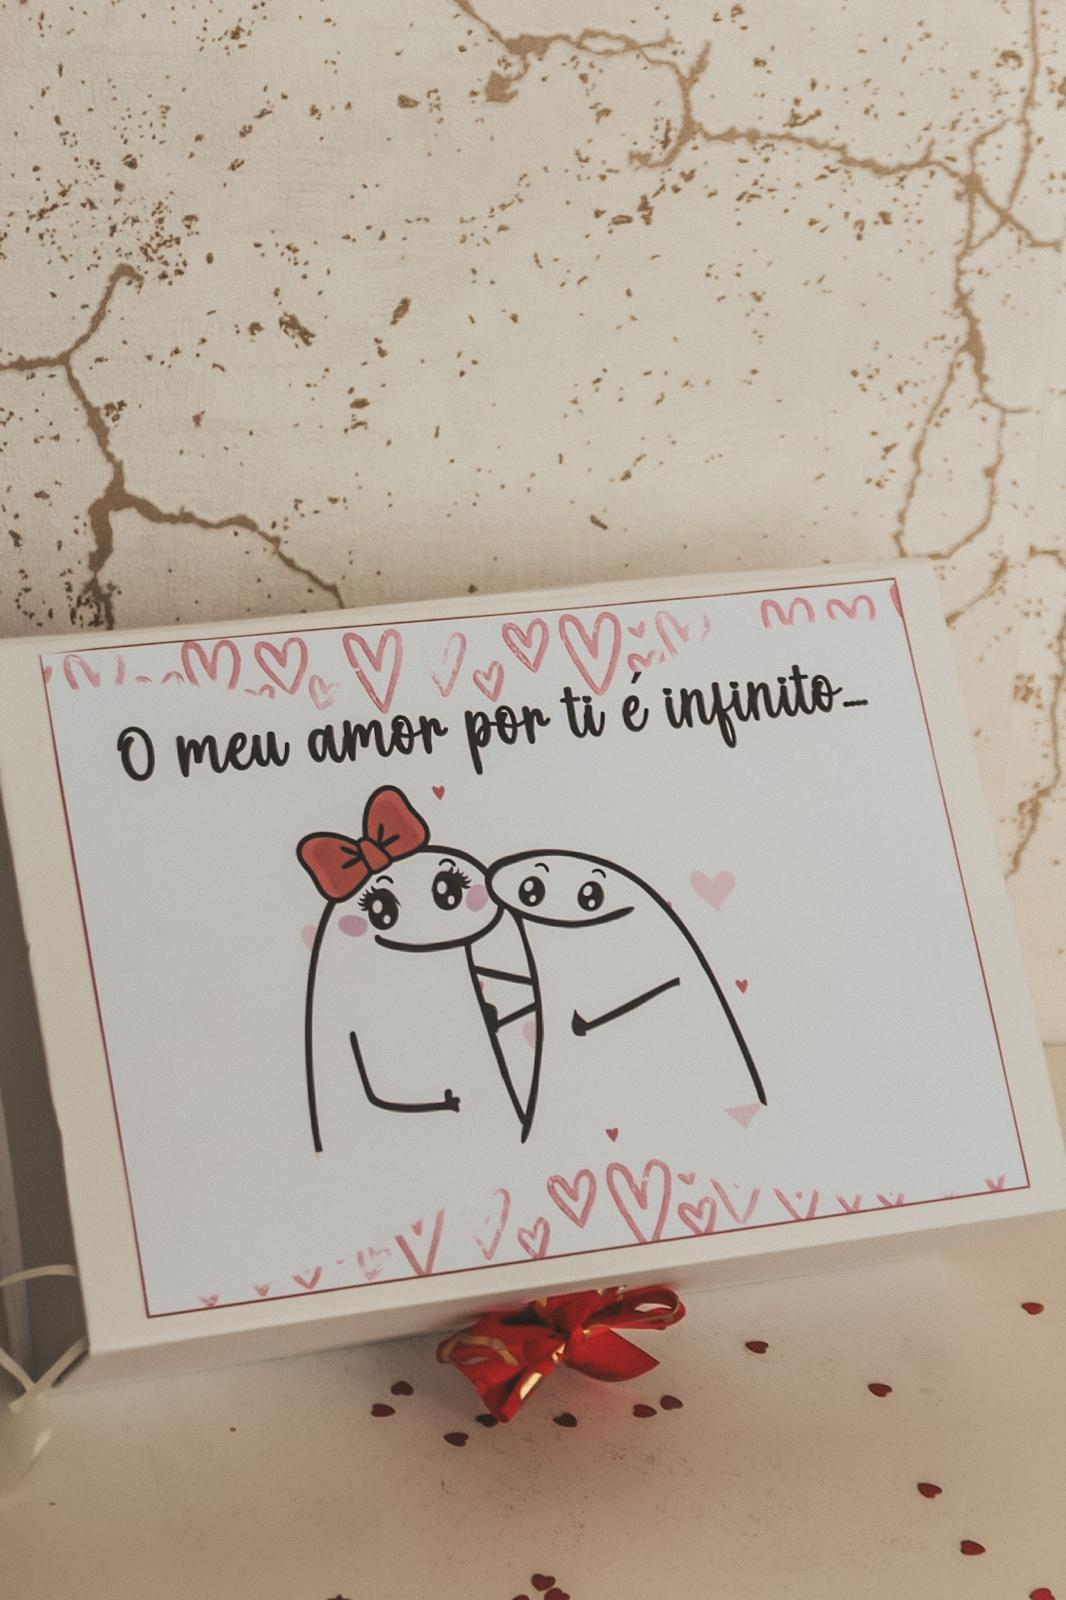 O meu amor por ti é infinito...